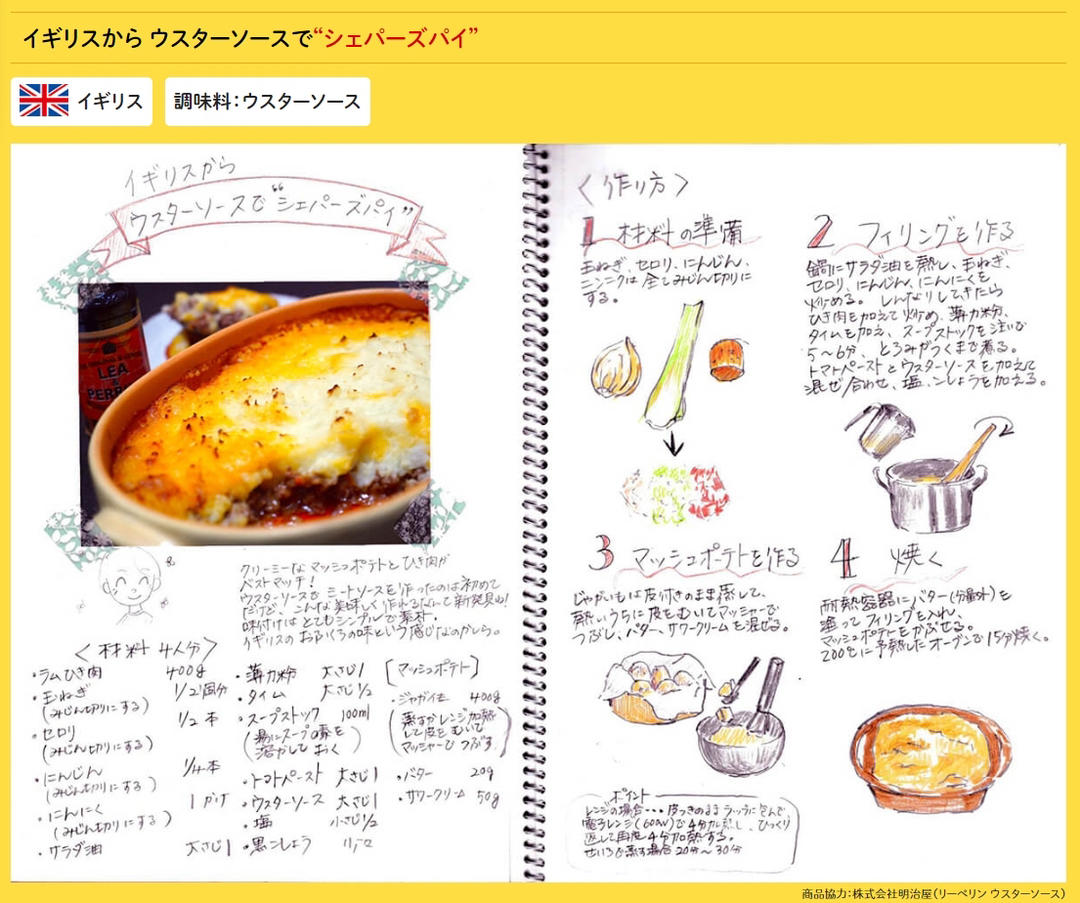 イギリスから ウスターソースで“シェパーズパイ”
イギリス
調味料：ウスターソース
イギリスから
ウスターソースで“シェパーズパイ”
LEA
PERR
クリーミーなマッシュポテトとひき肉が
ベストマッチ！
ウスターソースでミートソースを作ったのは初めて
だけど、こんな美味しく作れるなんて新発見！
味付けはとてもシンプルで素朴。
イギリスのおふくろの味という感じなのかしら。
＜材料 4人分＞
・ラムひき肉 400g
・玉ねぎ 1/2個分
（みじん切りにする）
・セロリ 1/2本
（みじん切りにする）
・にんじん 1/4本
（みじん切りにする）
・にんにく 1かけ
（みじん切りにする）
・サラダ油 大さじ1
・薄力粉 大さじ1
・タイム 大さじ1/2
・スープストック 100ml
（湯にスープの素を
溶かしておく）
・トマトペースト 大さじ1
・ウスターソース 大さじ1
・塩 小さじ1/2
・黒こしょう 小々
［マッシュポテト］
・ジャガイモ 400g
（蒸すかレンジ加熱
して皮をむいて
マッシャーでつぶす）
・バター 20g
・サワークリーム 50g
＜作り方＞
1 材料の準備
玉ねぎ、セロリ、にんじん、
ニンニクは全てみじん切りに
する。
2 フィリングを作る
鍋にサラダ油を熱し、玉ねぎ、
セロリ、にんじん、にんにくを
炒める。しんなりしてきたら
ひき肉を加えて炒め、薄力粉、
タイムを加え、スープストックを注いで
5〜6分、とろみがつくまで煮る。
トマトペーストとウスターソースを加えて
混ぜ合わせ、塩、こしょうを加える。
3 マッシュポテトを作る
じゃがいもは皮付きのまま蒸して、
熱いうちに皮をむいてマッシャーで
つぶし、バター、サワークリームを混ぜる。
4 焼く
耐熱容器にバター（分量外）を
塗ってフィリングを入れ、
マッシュポテトをかぶせる。
200℃に予熱したオーブンで15分焼く。
ポイント
レンジの場合・・・皮つきのままラップに包んで
電子レンジ（600W）で4分加熱し、ひっくり
返して再度4分加熱する。
せいろで蒸す場合20分〜30分
商品協力：株式会社明治屋（リーペリン ウスターソース）